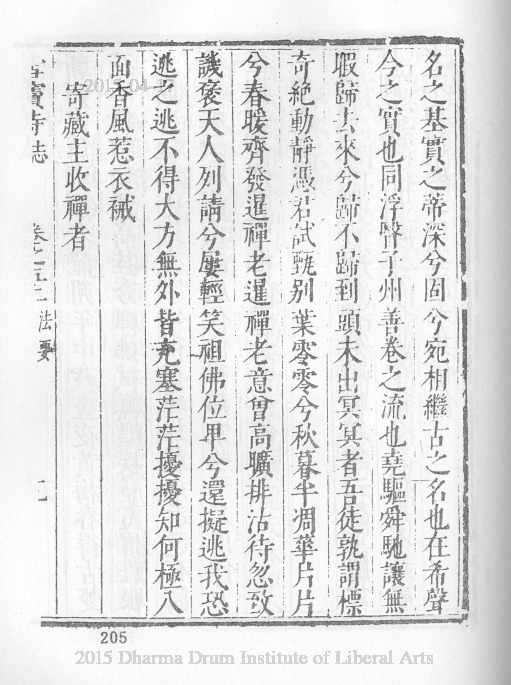 名之基實之蒂深兮固兮宛相繼古之名也在希聲
今之實也同浮瞖子州善卷之流也堯驅舜馳讓無
暇歸去來兮歸不歸到頭未出冥冥者吾徒孰謂標
奇絶動靜憑君試甄别葉零零兮秋暮半凋華片片
兮春暖齊發暹禪老暹禪老意曾高曠排沽待忽致
譏褒天人列請兮屢輕笑祖佛位卑兮還擬逃我恐
逃之逃不得大方無外皆充塞茫茫擾擾知何極八
面香風惹衣裓
寄藏主收禪者
寺志
卷之五二
法要
205
2015 Dharma Drum Institute of Liberal Arts